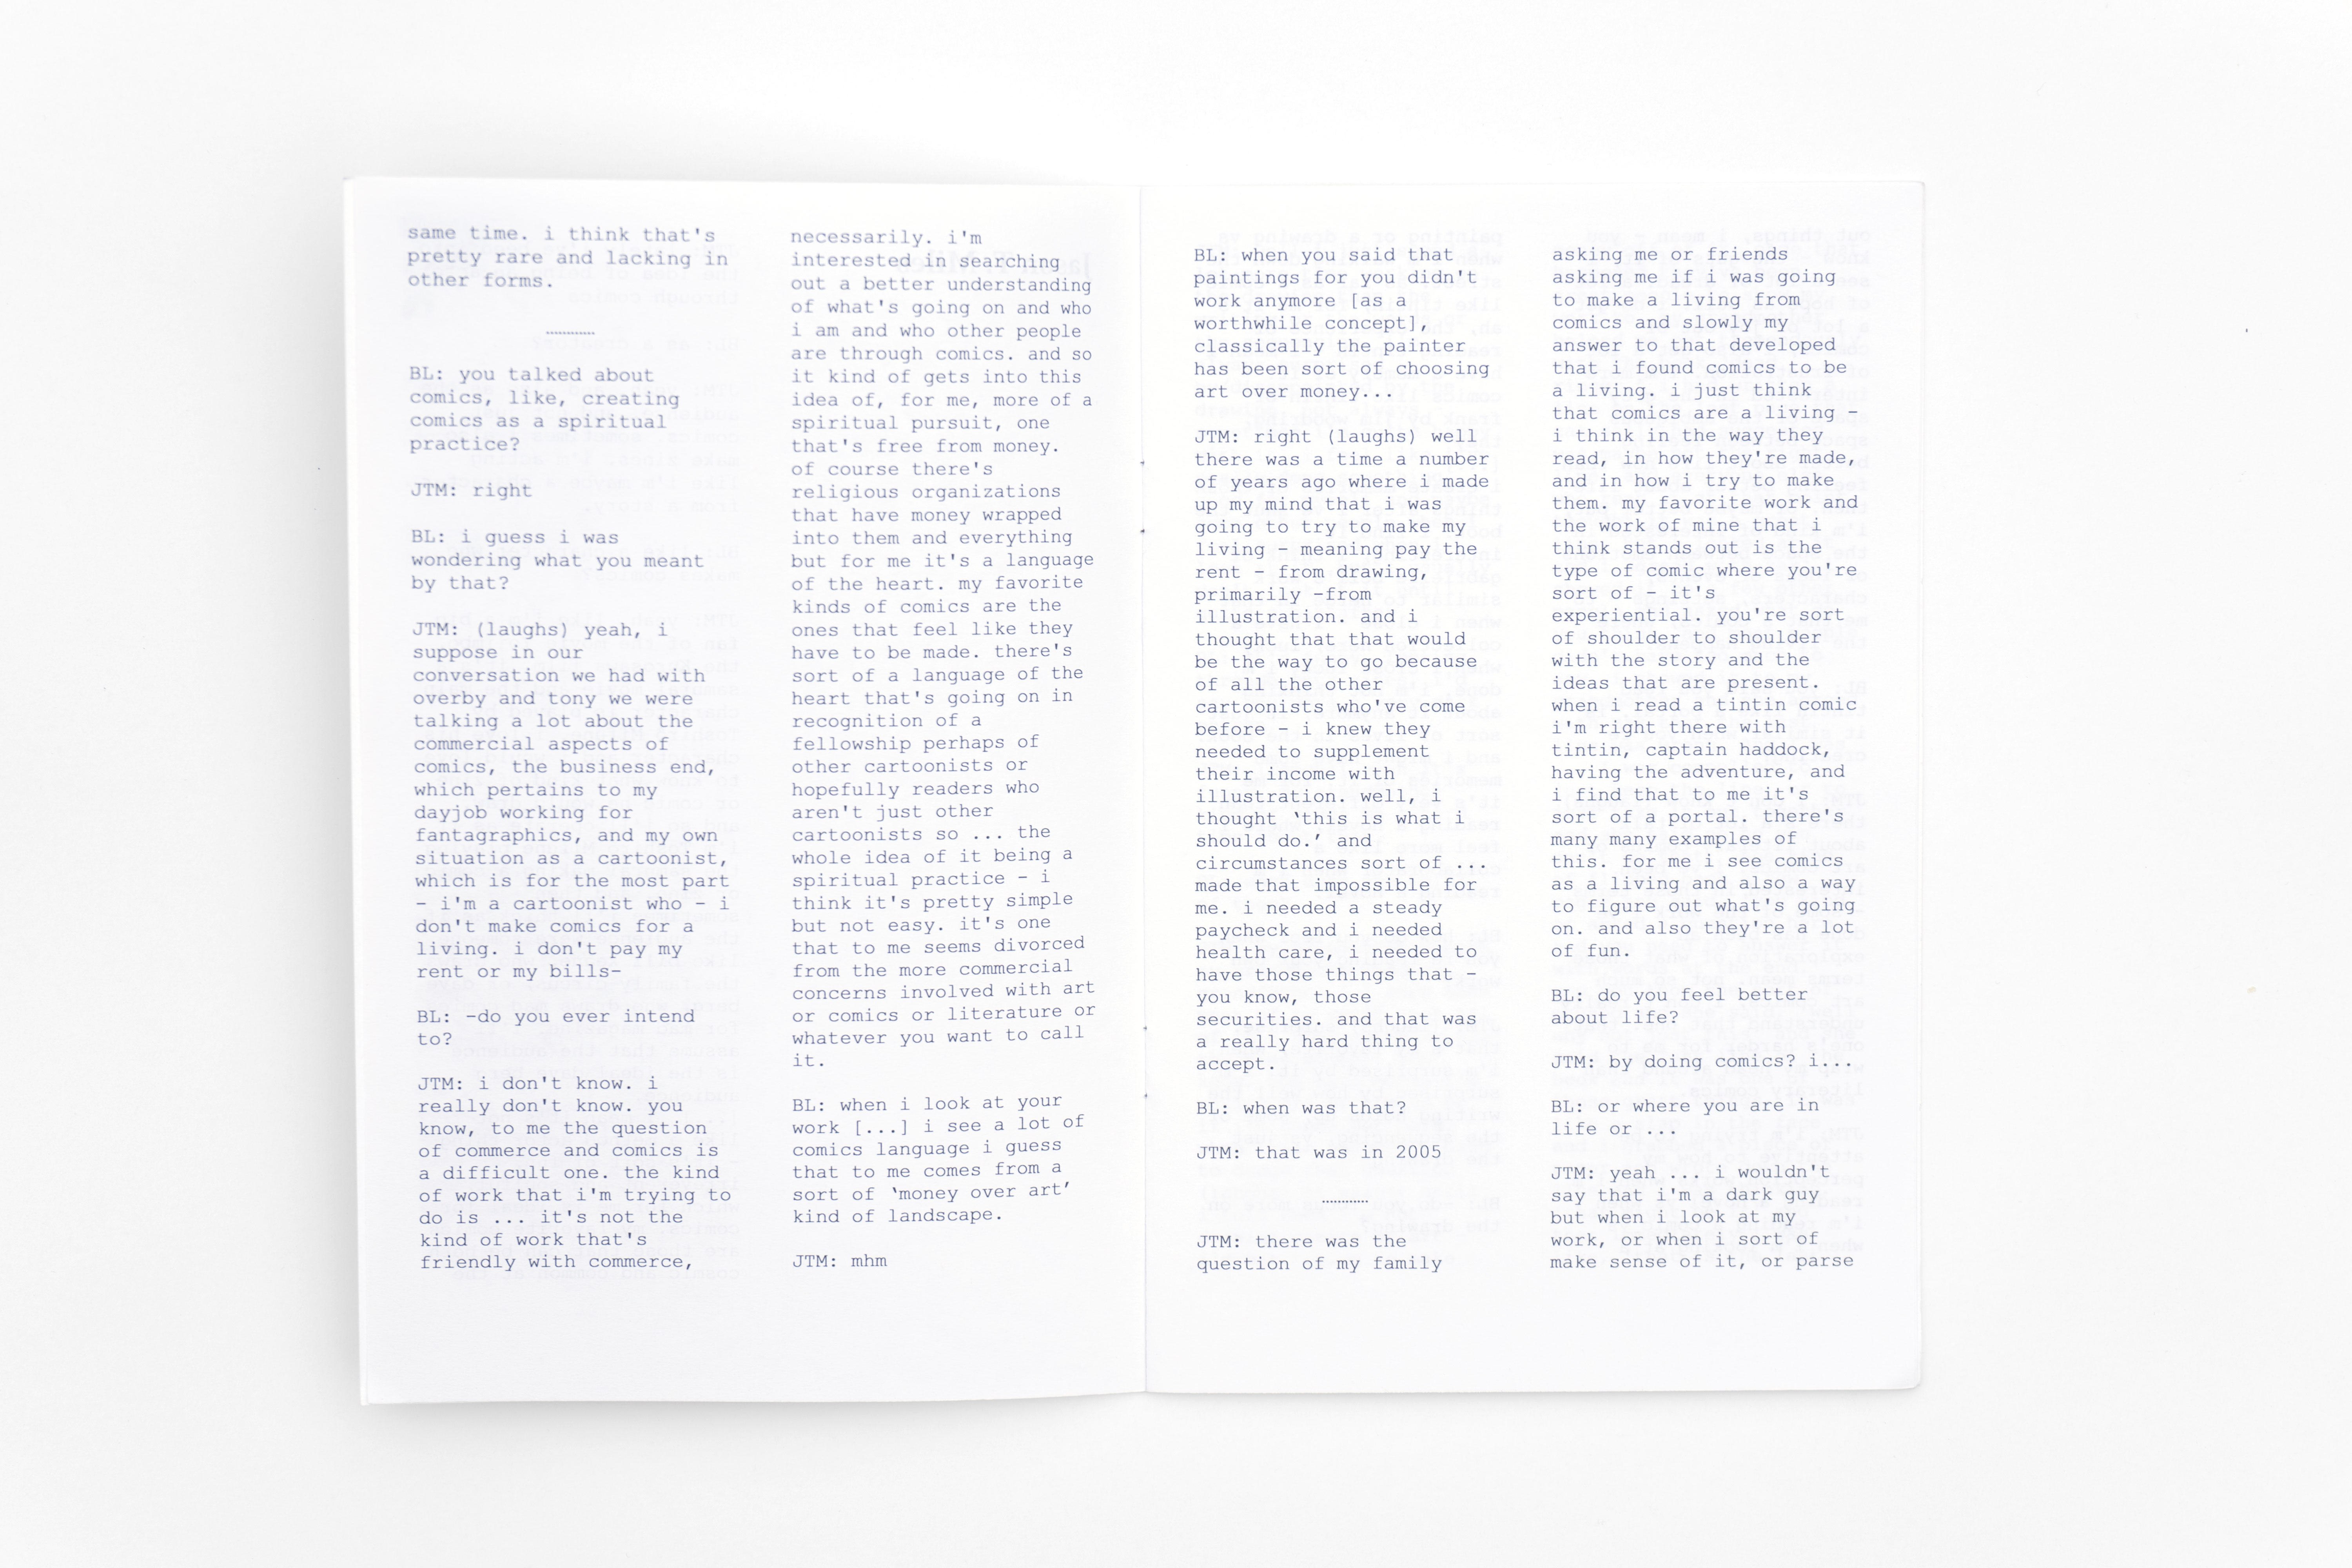 same time. i think that's
pretty rare and lacking in
other forms.
............
BL: you talked about
comics, like, creating
comics as a spiritual
practice?
JTM: right
BL: i guess i was
wondering what you meant
by that?
JTM: (laughs) yeah, i
suppose in our
conversation we had with
overby and tony we were
talking a lot about the
commercial aspects of
comics, the business end,
which pertains to my
dayjob working for
fantagraphics, and my own
situation as a cartoonist,
which is for the most part
- i'm a cartoonist who - i
don't make comics for a
living. i don't pay my
rent or my bills-
BL: -do you ever intend
to?
JTM: i don't know. i
really don't know. you
know, to me the question
of commerce and comics is
a difficult one. the kind
of work that i'm trying to
do is ... it's not the
kind of work that's
friendly with commerce,
necessarily. i'm
interested in searching
out a better understanding
of what's going on and who
i am and who other people
are through comics. and so
it kind of gets into this
idea of, for me, more of a
spiritual pursuit, one
that's free from money.
of course there's
religious organizations
that have money wrapped
into them and everything
but for me it's a language
of the heart. my favorite
kinds of comics are the
ones that feel like they
have to be made. there's
sort of a language of the
heart that's going on in
recognition of a
fellowship perhaps of
other cartoonists or
hopefully readers who
aren't just other
cartoonists so ... the
whole idea of it being a
spiritual practice - i
think it's pretty simple
but not easy. it's one
that to me seems divorced
from the more commercial
concerns involved with art
or comics or literature or
whatever you want to call
it.
BL: when i look at your
work [...] i see a lot of
comics language i guess
that to me comes from a
sort of ‘money over art’
kind of landscape.
JTM: mhm
BL: when you said that
paintings for you didn't
work anymore [as a
worthwhile concept],
classically the painter
has been sort of choosing
art over money...
JTM: right (laughs) well
there was a time a number
of years ago where i made
up my mind that i was
going to try to make my
living - meaning pay the
rent - from drawing,
primarily -from
illustration. and i
thought that that would
be the way to go because
of all the other
cartoonists who've come
before - i knew they
needed to supplement
their income with
illustration. well, i
thought ‘this is what i
should do.’ and
circumstances sort of ...
made that impossible for
me. i needed a steady
paycheck and i needed
health care, i needed to
have those things that -
you know, those
securities. and that was
a really hard thing to
accept.
BL: when was that?
JTM: that was in 2005
............
JTM: there was the
question of my family
asking me or friends
asking me if i was going
to make a living from
comics and slowly my
answer to that developed
that i found comics to be
a living. i just think
that comics are a living -
i think in the way they
read, in how they're made,
and in how i try to make
them. my favorite work and
the work of mine that i
think stands out is the
type of comic where you're
sort of - it's
experiential. you're sort
of shoulder to shoulder
with the story and the
ideas that are present.
when i read a tintin comic
i'm right there with
tintin, captain haddock,
having the adventure, and
i find that to me it's
sort of a portal. there's
many many examples of
this. for me i see comics
as a living and also a way
to figure out what's going
on. and also they're a lot
of fun.
BL: do you feel better
about life?
JTM: by doing comics? i...
BL: or where you are in
life or ...
JTM: yeah ... i wouldn't
say that i'm a dark guy
but when i look at my
work, or when i sort of
make sense of it, or parse